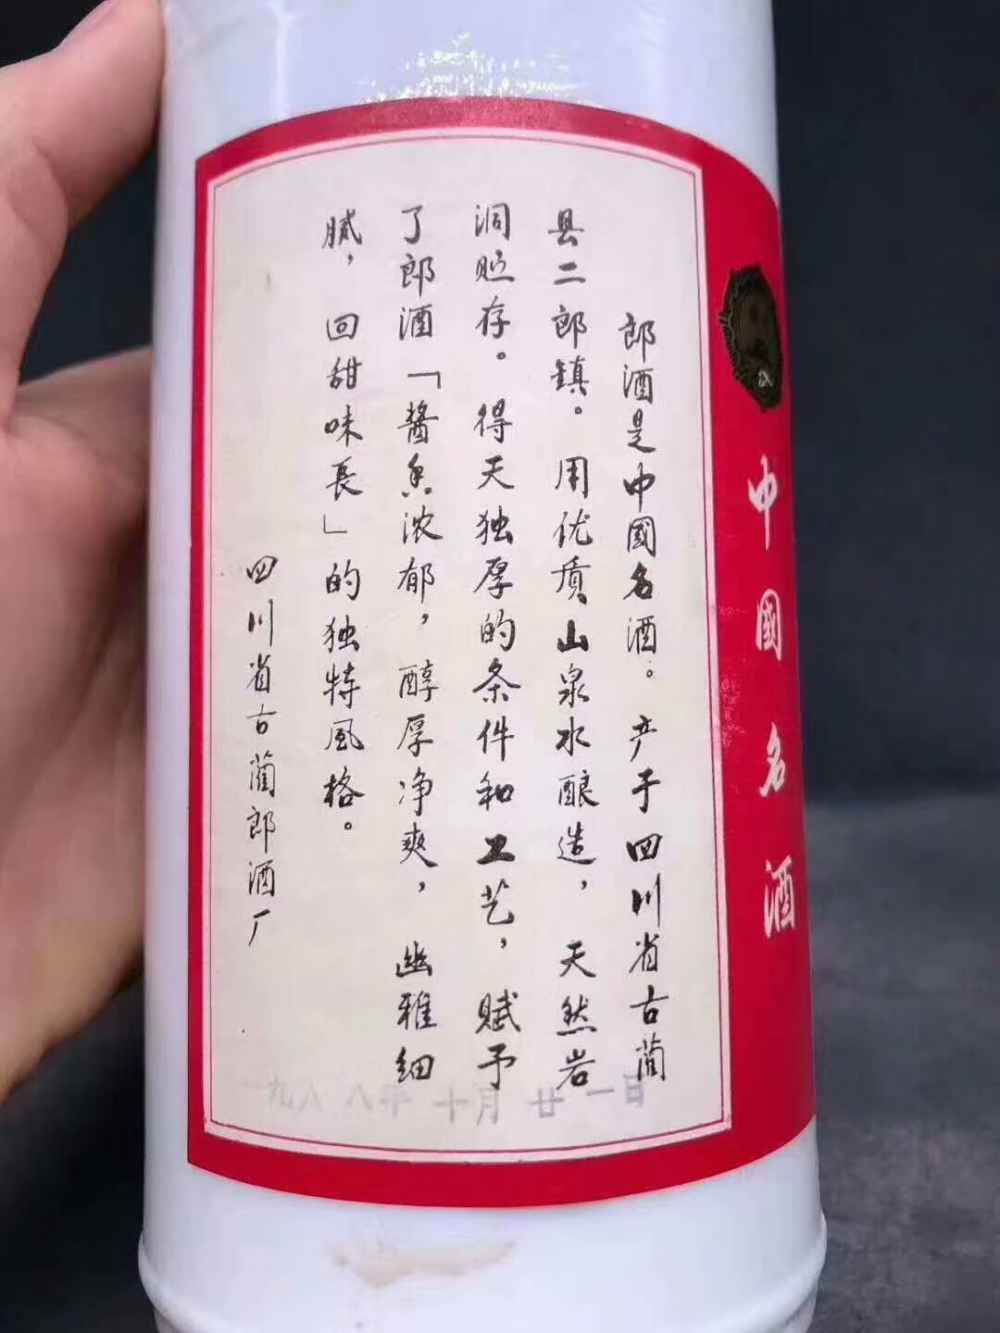 郎酒是中國名酒。产于四川省古藺
县二郎镇。用优质山泉水酿造，天然岩
洞贮存。得天独厚的条件和工艺，赋予
了郎酒「醬香浓郁，醇厚净爽，幽雅细
腻，回甜味長」的独特風格。
四川省古藺郎酒厂
一九八八年十月廿一日
中國名酒